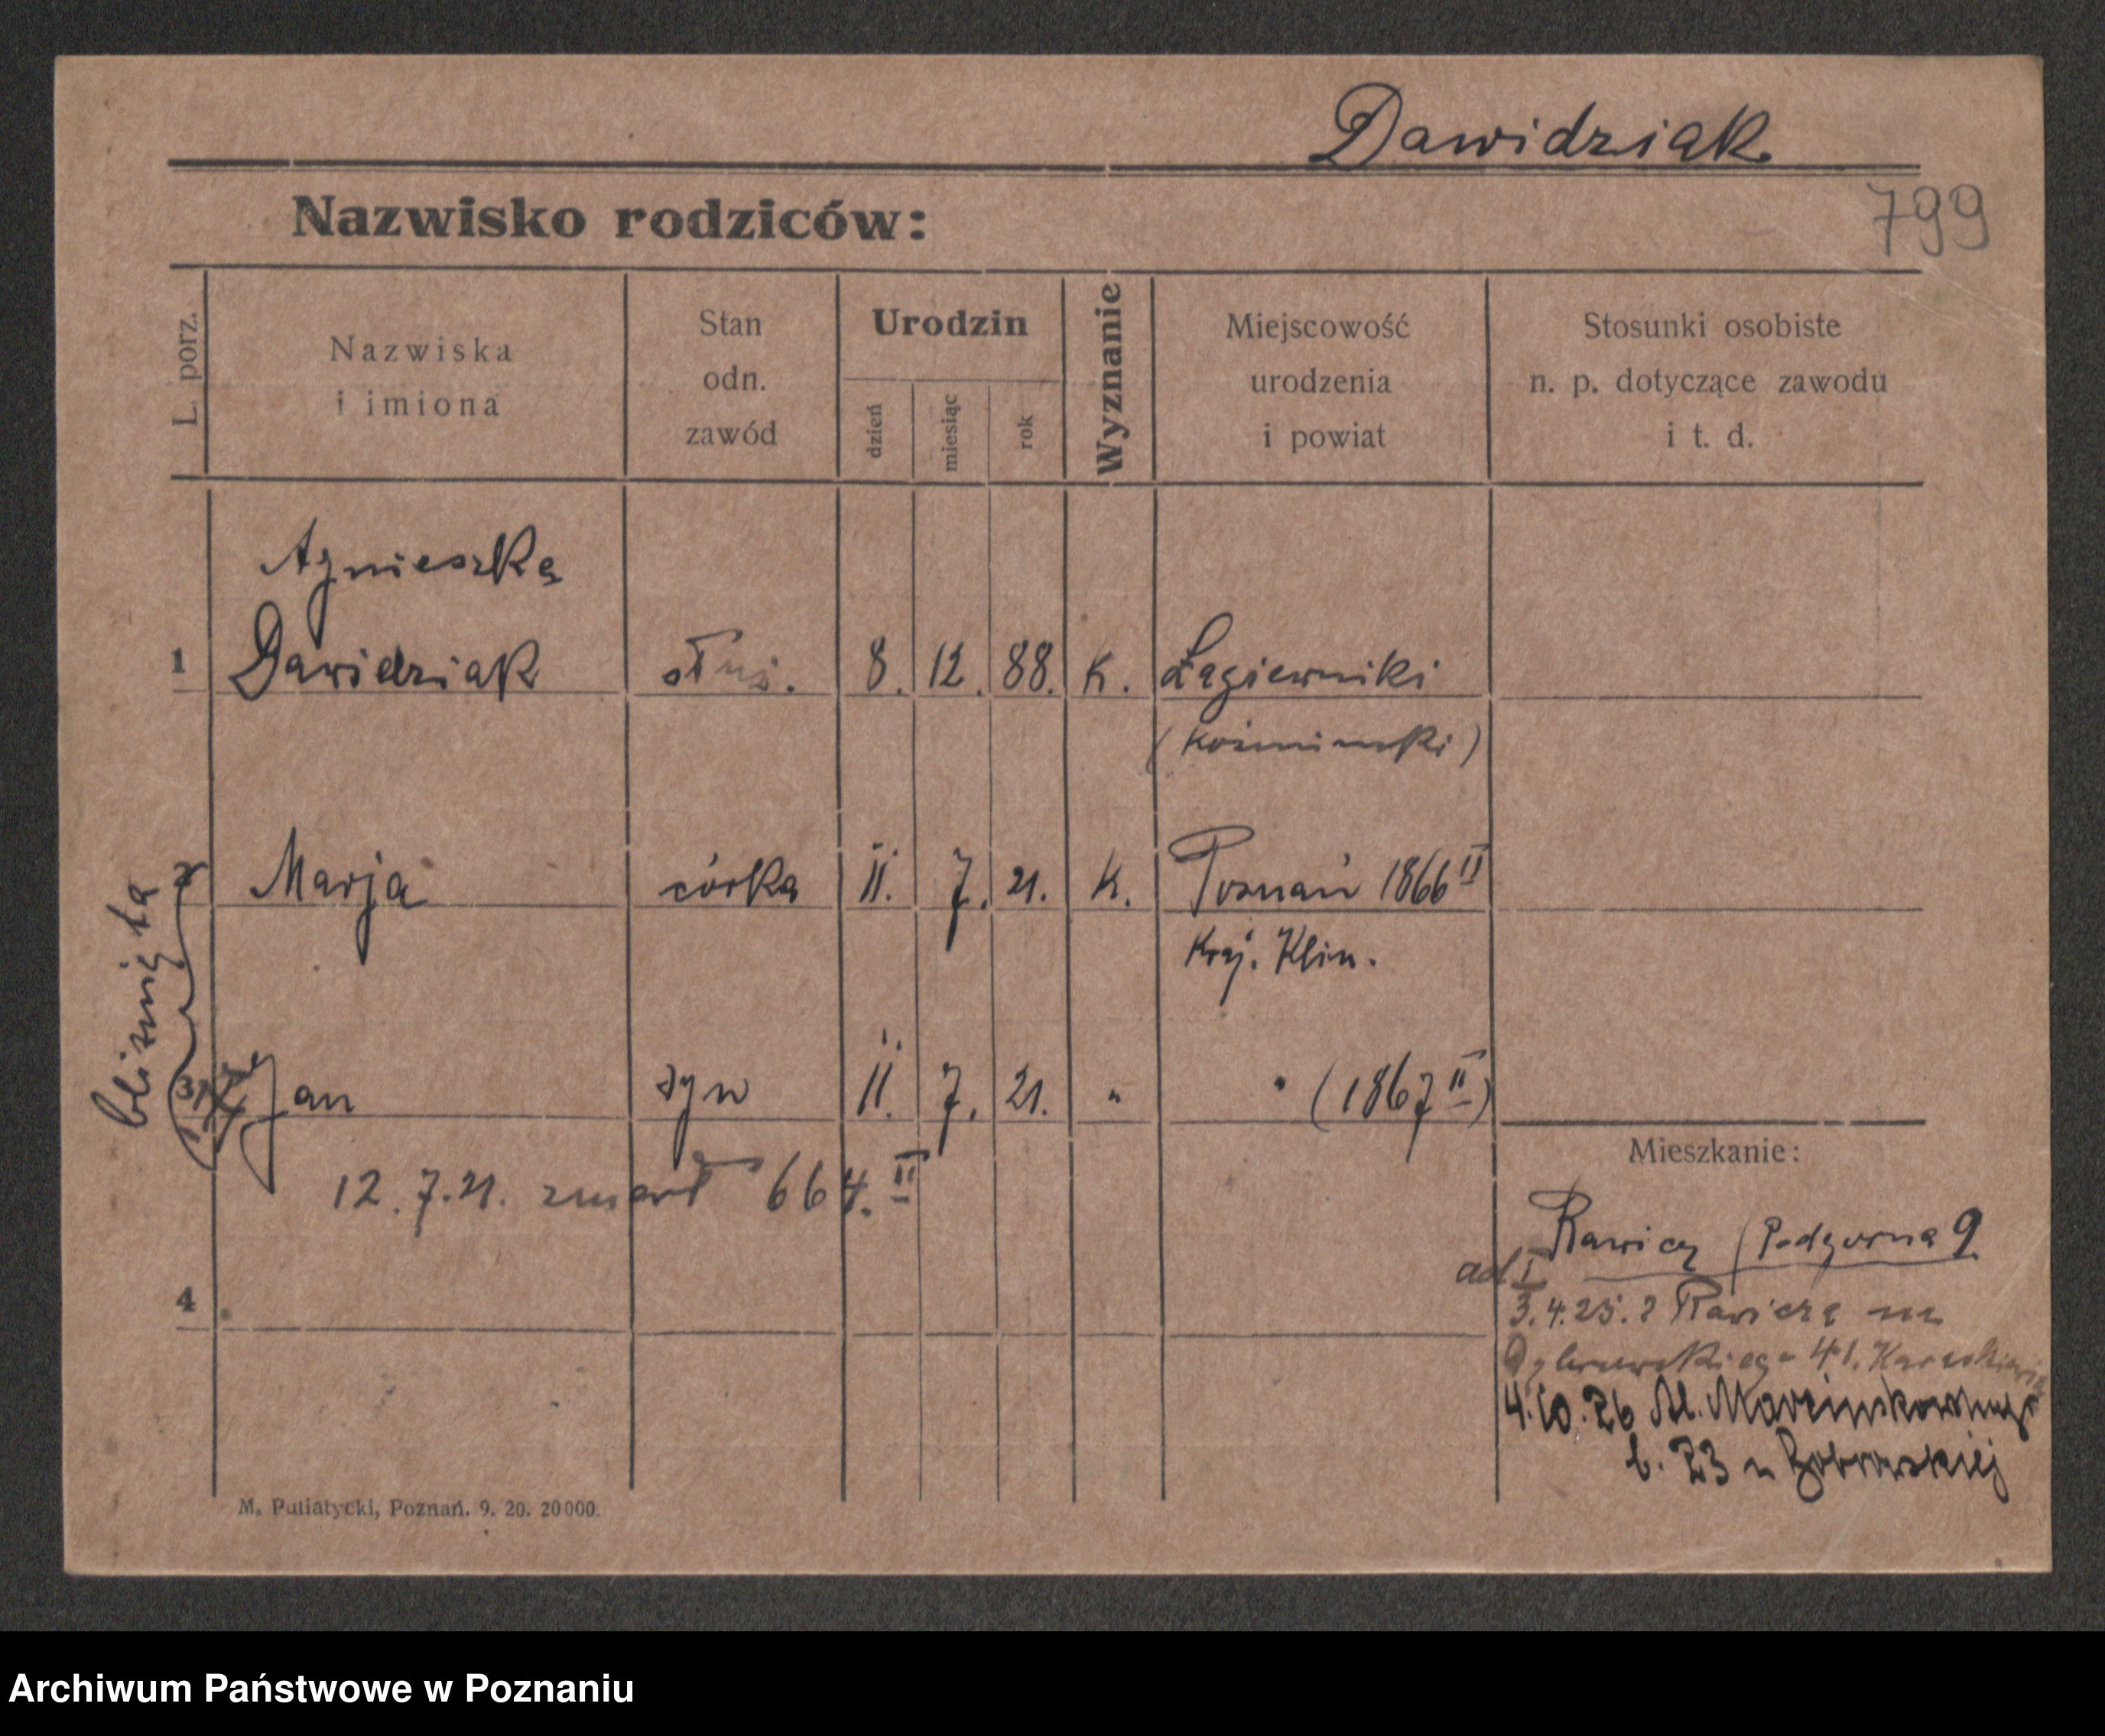 Dawidziak
799
Nazwisko rodziców:
L. porz.
Nazwiska
i imiona
Stan
odn.
zawód
Urodzin
dzień
miesiąc
rok
Wyznanie
Miejscowość
urodzenia
i powiat
Stosunki osobiste
n. p. dotyczące zawodu
i t. d.
Agnieszka
1 Dawidziak służ. 8. 12. 88. K. Łagiewniki
(koźmiński)
bliźnięta
Marja córka 11. 7. 21. K. Poznań 1866 II
Kraj. Klin.
3 Jan syn 11. 7. 21. " " (1867 II)
12.7.21. zmarł 664. II
Mieszkanie:
Rawicz Podgórna 9
ad I
3.4.25. z Rawicza na
41.
4.10.26 Al. Marcinkowskiego
b. 23 u Bobrowskiej
4
M. Putiatycki, Poznań. 9. 20. 20000.
Archiwum Państwowe w Poznaniu